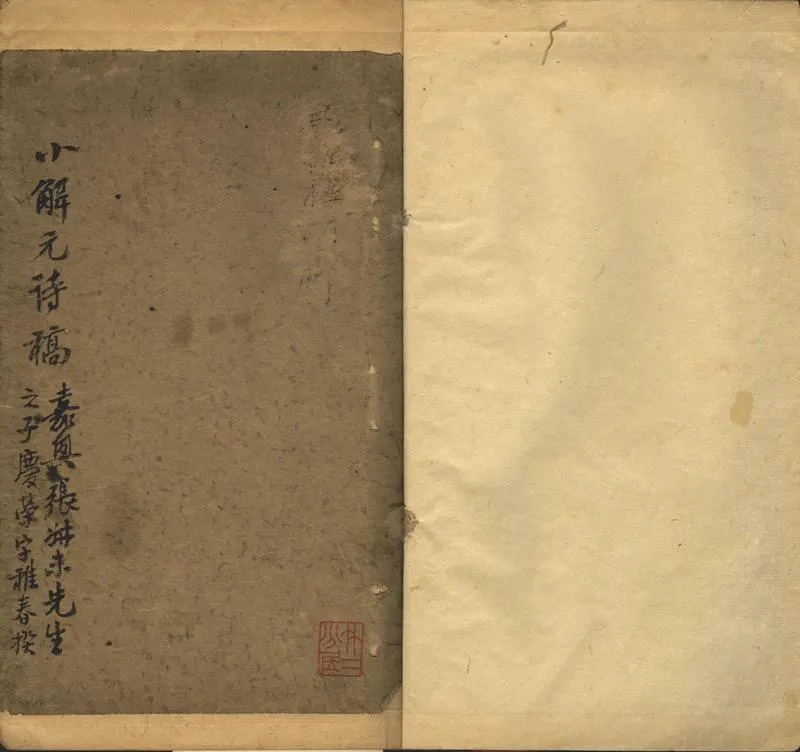 小解元诗稿
嘉興張叔未先生
之子慶榮字稚春撰